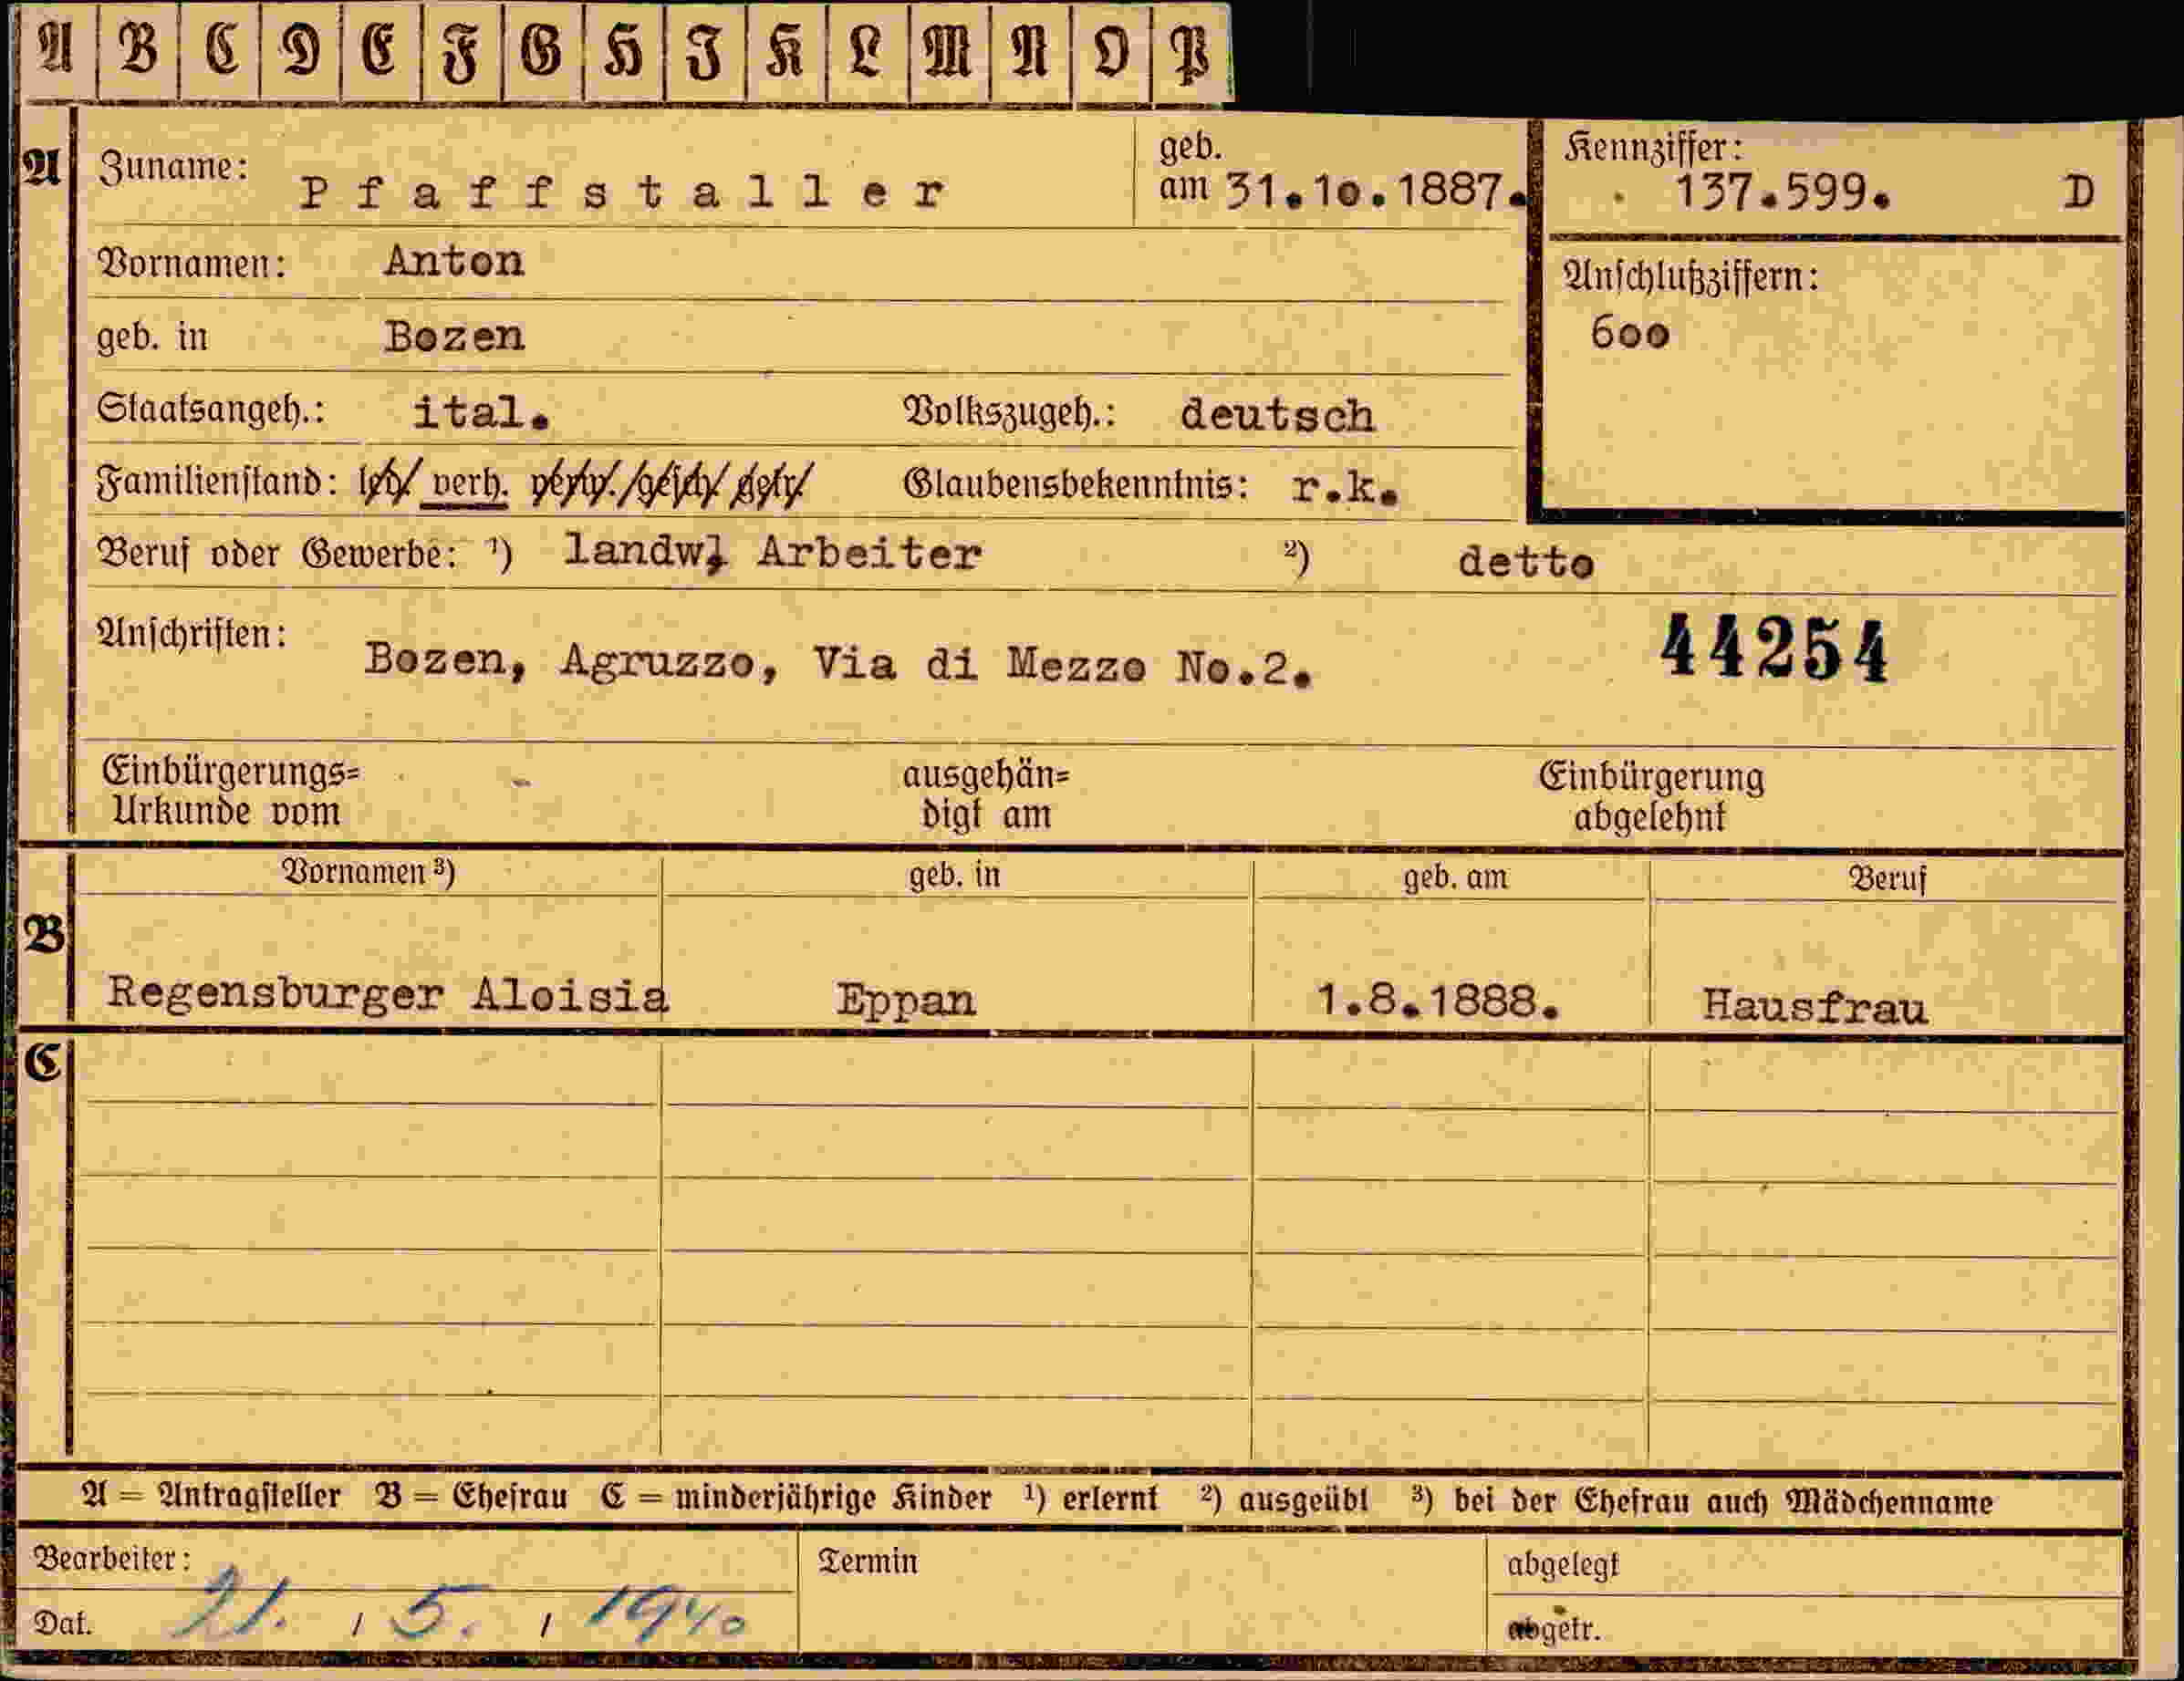 A B C D E F G H I K L M N O P
A Zuname: Pfaffstaller geb. am 31.10.1887. Kennziffer: 137.599. D
Vornamen: Anton Anschlußziffern:
geb. in Bozen 600
Staatsangeh.: ital. Volkszugeh.: deutsch
Familienstand: led. verh. verw. gesch. getr. Glaubensbekenntnis: r.k.
Beruf oder Gewerbe: ¹) landw. Arbeiter ²) detto
Anschriften: Bozen, Agruzzo, Via di Mezzo No.2. 44254
Einbürgerungs= ausgehän= Einbürgerung
Urkunde vom digt am abgelehnt
Vornamen ³) geb. in geb. am Beruf
B
Regensburger Aloisia Eppan 1.8.1888. Hausfrau
C
A = Antragsteller B = Ehefrau C = minderjährige Kinder ¹) erlernt ²) ausgeübt ³) bei der Ehefrau auch Mädchenname
Bearbeiter: Termin abgelegt
Dat. 21. / 5. / 1940 abgetr.